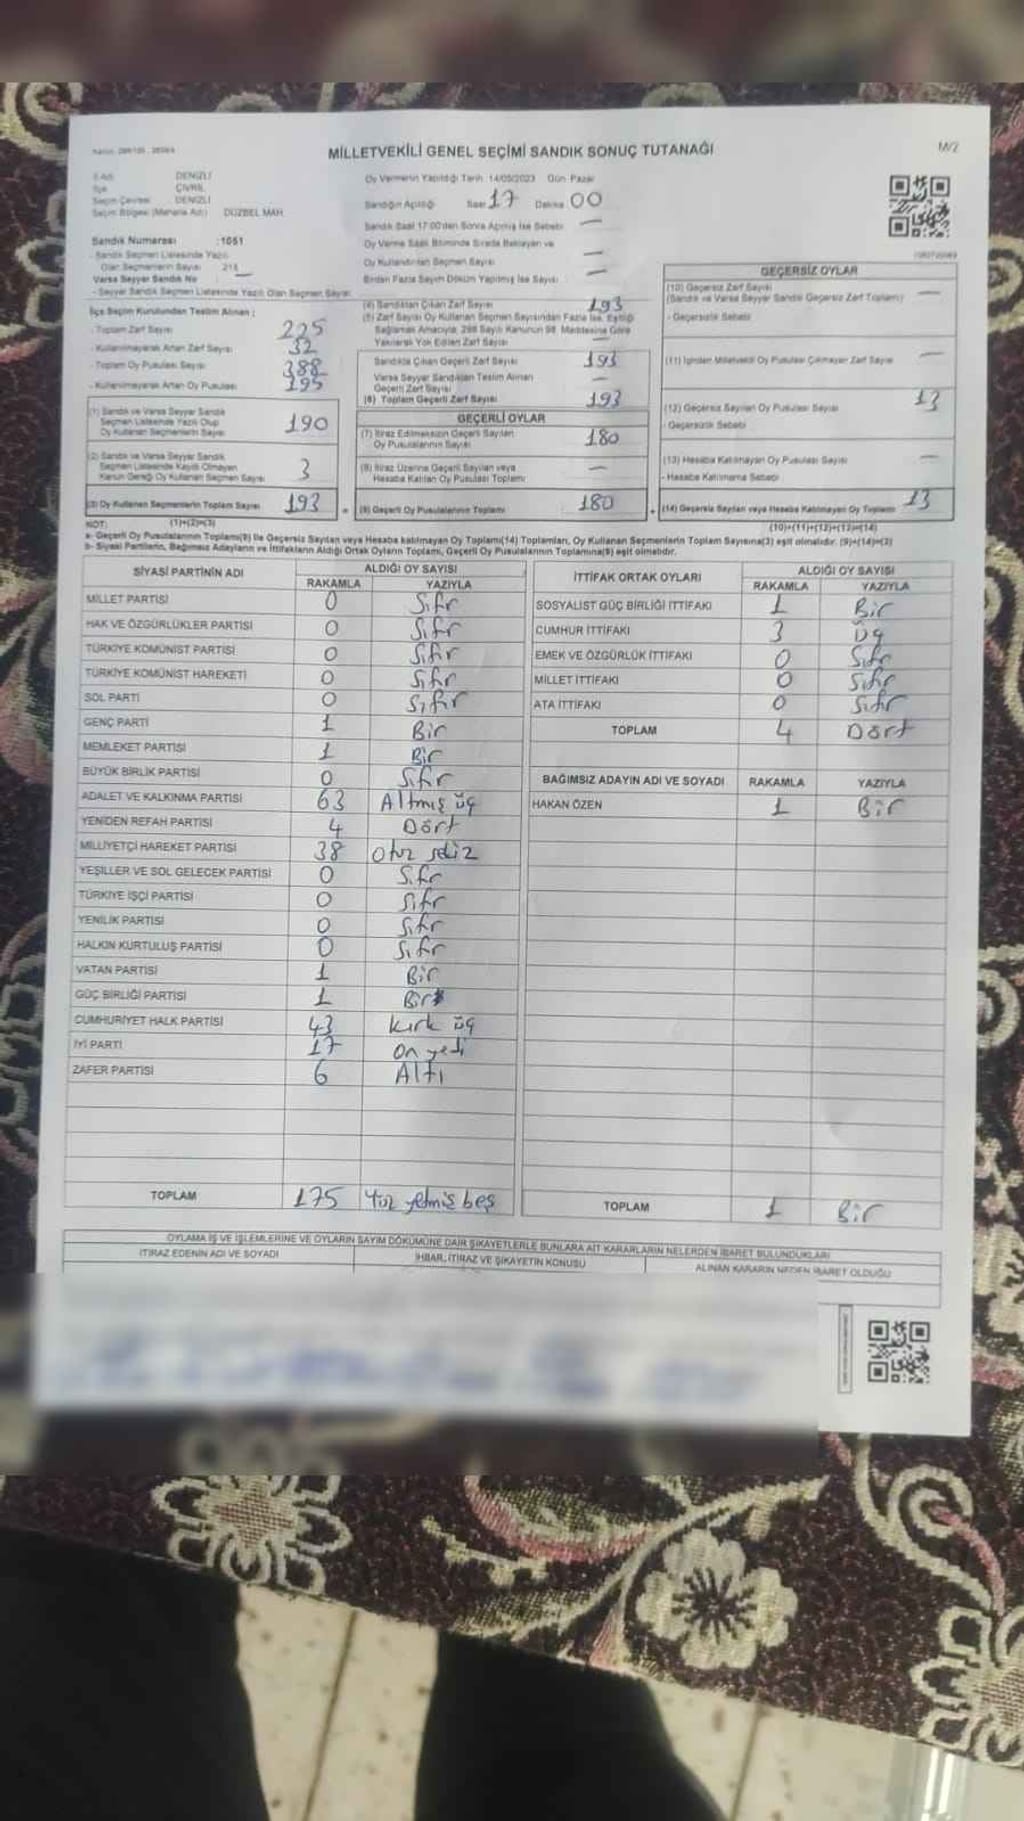 MİLLETVEKİLİ GENEL SEÇİMİ SANDIK SONUÇ TUTANAĞI
M/2
DENİZLİ
İlçe ÇİVRİL
Seçim Çevresi DENİZLİ
Seçim Bölgesi (Mahalle Adı) DÜZBEL MAH.
Oy Vermenin Yapıldığı Tarih: 14/05/2023 Gün: Pazar
Sandığın Açıldığı Saat 17 Dakika 00
Sandık Saat 17:00'den Sonra Açılmış İse Sebebi —
Oy Verme Saati Bitiminde Sırada Bekleyen ve
Oy Kullandırılan Seçmen Sayısı —
Birden Fazla Sayım Döküm Yapılmış İse Sayısı —
Sandık Numarası :1051
- Sandık Seçmen Listesinde Yazılı
Olan Seçmenlerin Sayısı
Varsa Seyyar Sandık No —
- Seyyar Sandık Seçmen Listesinde Yazılı Olan Seçmen Sayısı
İlçe Seçim Kurulundan Teslim Alınan ;
- Toplam Zarf Sayısı 225
- Kullanılmayarak Artan Zarf Sayısı 32
- Toplam Oy Pusulası Sayısı 388
- Kullanılmayarak Artan Oy Pusulası 195
(1) Sandık ve Varsa Seyyar Sandık
Seçmen Listesinde Yazılı Olup
Oy Kullanan Seçmenlerin Sayısı 190
(2) Sandık ve Varsa Seyyar Sandık
Seçmen Listesinde Kayıtlı Olmayan
Kanun Gereği Oy Kullanan Seçmen Sayısı 3
(3) Oy Kullanan Seçmenlerin Toplam Sayısı 193
(1)+(2)=(3)
(4) Sandıktan Çıkan Zarf Sayısı 193
(5) Zarf Sayısı Oy Kullanan Seçmen Sayısından Fazla İse, Eşitliği
Sağlamak Amacıyla, 298 Sayılı Kanunun 98. Maddesine Göre
Yakılarak Yok Edilen Zarf Sayısı —
Sandıkta Çıkan Geçerli Zarf Sayısı 193
Varsa Seyyar Sandıktan Teslim Alınan
Geçerli Zarf Sayısı —
(6) Toplam Geçerli Zarf Sayısı 193
GEÇERLİ OYLAR
(7) İtiraz Edilmeksizin Geçerli Sayılan
Oy Pusulalarının Sayısı 180
(8) İtiraz Üzerine Geçerli Sayılan veya
Hesaba Katılan Oy Pusulası Toplamı —
(9) Geçerli Oy Pusulalarının Toplamı 180
GEÇERSİZ OYLAR
(10) Geçersiz Zarf Sayısı
(Sandık ve Varsa Seyyar Sandık Geçersiz Zarf Toplamı) —
- Geçersizlik Sebebi
(11) İçinden Milletvekili Oy Pusulası Çıkmayan Zarf Sayısı —
(12) Geçersiz Sayılan Oy Pusulası Sayısı 13
- Geçersizlik Sebebi
(13) Hesaba Katılmayan Oy Pusulası Sayısı —
- Hesaba Katılmama Sebebi
(14) Geçersiz Sayılan veya Hesaba Katılmayan Oy Toplamı 13
(10)+(11)+(12)+(13)=(14)
NOT:
a- Geçerli Oy Pusulalarının Toplamı(9) ile Geçersiz Sayılan veya Hesaba katılmayan Oy Toplamı(14) Toplamları, Oy Kullanan Seçmenlerin Toplam Sayısına(3) eşit olmalıdır. (9)+(14)=(3)
b- Siyasi Partilerin, Bağımsız Adayların ve İttifakların Aldığı Ortak Oyların Toplamı, Geçerli Oy Pusulalarının Toplamına(9) eşit olmalıdır.
SİYASİ PARTİNİN ADI ALDIĞI OY SAYISI
RAKAMLA YAZIYLA
MİLLET PARTİSİ 0 Sıfır
HAK VE ÖZGÜRLÜKLER PARTİSİ 0 Sıfır
TÜRKİYE KOMÜNİST PARTİSİ 0 Sıfır
TÜRKİYE KOMÜNİST HAREKETİ 0 Sıfır
SOL PARTİ 0 Sıfır
GENÇ PARTİ 1 Bir
MEMLEKET PARTİSİ 1 Bir
BÜYÜK BİRLİK PARTİSİ 0 Sıfır
ADALET VE KALKINMA PARTİSİ 63 Altmış üç
YENİDEN REFAH PARTİSİ 4 Dört
MİLLİYETÇİ HAREKET PARTİSİ 38 Otuz sekiz
YEŞİLLER VE SOL GELECEK PARTİSİ 0 Sıfır
TÜRKİYE İŞÇİ PARTİSİ 0 Sıfır
YENİLİK PARTİSİ 0 Sıfır
HALKIN KURTULUŞ PARTİSİ 0 Sıfır
VATAN PARTİSİ 1 Bir
GÜÇ BİRLİĞİ PARTİSİ 1 Bir
CUMHURİYET HALK PARTİSİ 43 Kırk üç
İYİ PARTİ 17 On yedi
ZAFER PARTİSİ 6 Altı
TOPLAM 175 Yüz yetmiş beş
İTTİFAK ORTAK OYLARI ALDIĞI OY SAYISI
RAKAMLA YAZIYLA
SOSYALİST GÜÇ BİRLİĞİ İTTİFAKI 1 Bir
CUMHUR İTTİFAKI 3 Üç
EMEK VE ÖZGÜRLÜK İTTİFAKI 0 Sıfır
MİLLET İTTİFAKI 0 Sıfır
ATA İTTİFAKI 0 Sıfır
TOPLAM 4 Dört
BAĞIMSIZ ADAYIN ADI VE SOYADI RAKAMLA YAZIYLA
HAKAN ÖZEN 1 Bir
TOPLAM 1 Bir
OYLAMA İŞ VE İŞLEMLERİNE VE OYLARIN SAYIM DÖKÜMÜNE DAİR ŞİKAYETLERLE BUNLARA AİT KARARLARIN NELERDEN İBARET BULUNDUKLARI
İTİRAZ EDENİN ADI VE SOYADI
İHBAR, İTİRAZ VE ŞİKAYETİN KONUSU
ALINAN KARARIN NEDEN İBARET OLDUĞU